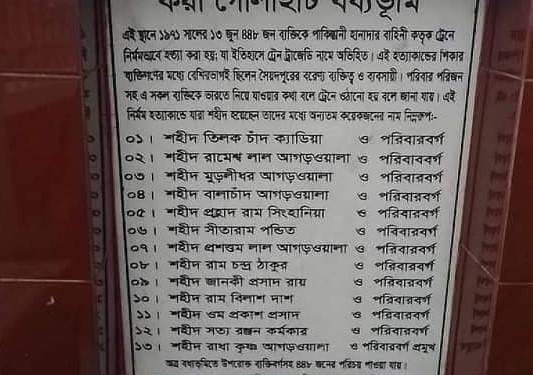 গোলাহাট বধ্যভূমি
এই স্থানে ১৯৭১ সালের ১৩ জুন ৪৪৮ জন ব্যক্তিকে পাকিস্থানী হানাদার বাহিনী কতৃক ট্রেনে
নির্মমভাবে হত্যা করা হয়; যা ইতিহাসে ট্রেন ট্রাজেডি নামে অভিহিত। এই হত্যাকান্ডের শিকার
ব্যক্তিগণের মধ্যে বেশিরভাগই ছিলেন সৈয়দপুরের বরেণ্য ব্যক্তিত্ব ও ব্যবসায়ী। পরিবার পরিজন
সহ এ সকল ব্যক্তিকে ভারতে নিয়ে যাওয়ার কথা বলে ট্রেনে ওঠানো হয় বলে জানা যায়। এই
নির্মম হত্যাকান্ডে যারা শহীদ হয়েছেন তাদের মধ্যে অন্যতম কয়েকজনের নাম নিম্নরুপ:-
০১। শহীদ তিলক চাঁদ ক্যাডিয়া ও পরিবারবর্গ
০২। শহীদ রামেশ্ব লাল আগড়ওয়ালা ও পরিবারবর্গ
০৩। শহীদ মুড়লীধর আগড়ওয়ালা ও পরিবারবর্গ
০৪। শহীদ বালাচাঁদ আগড়ওয়ালা ও পরিবারবর্গ
০৫। শহীদ প্রহ্লাদ রাম সিংহানিয়া ও পরিবারবর্গ
০৬। শহীদ সীতারাম পন্ডিত ও পরিবারবর্গ
০৭। শহীদ লাল আগড়ওয়ালা ও পরিবারবর্গ
০৮। শহীদ রাম চন্দ্র ঠাকুর ও পরিবারবর্গ
০৯। শহীদ জানকী প্রসাদ রায় ও পরিবারবর্গ
১০। শহীদ রাম বিলাশ দাশ ও পরিবারবর্গ
১১। শহীদ ওম প্রকাশ প্রসাদ ও পরিবারবর্গ
১২। শহীদ সত্য রঞ্জন কর্মকার ও পরিবারবর্গ
১৩। শহীদ রাধা কৃষ্ণ আগড়ওয়ালা ও পরিবারবর্গ প্রমুখ
অত্র বধ্যভূমিতে উপরোক্ত ব্যক্তিবর্গসহ ৪৪৮ জনের পরিচয় পাওয়া যায়।